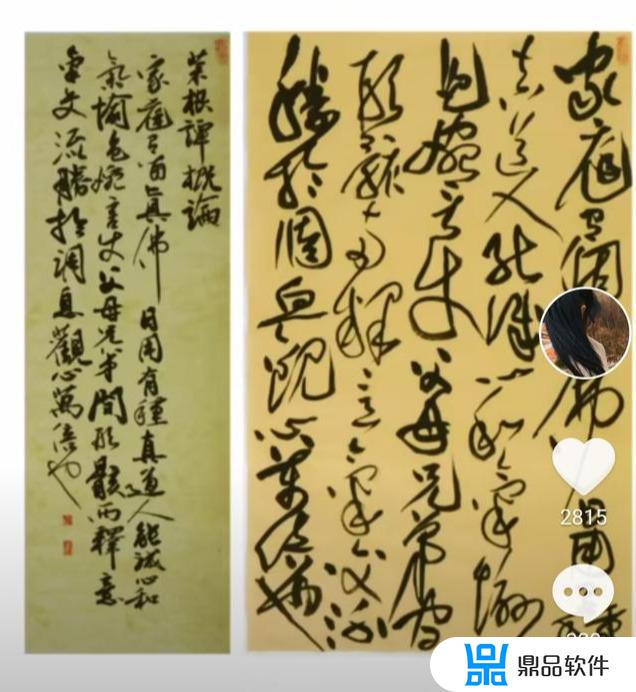 菜根譚概論
家庭有個真佛 日用有種真道人能誠心和
氣愉色婉言使父母兄弟間形骸兩釋意
氣交流勝於調息觀心萬倍也
家庭有個佛日用種
真道人能誠心和氣愉
色婉言使父母兄弟間
形骸兩釋意氣交流
勝於調息觀心萬倍也
2815
鼎品软件